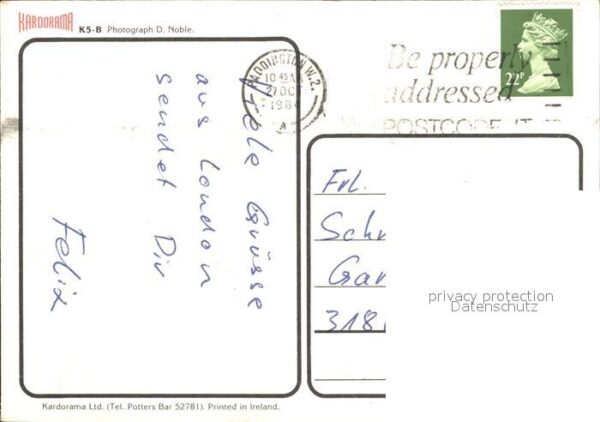 KARDORAMA K5-B Photograph D. Noble.
Viele Grüsse
aus London
sendet Dir
Felix
PADDINGTON W.2.
10 45 AM
27 OC
1984
A
Be properly
addressed
POSTCODE IT
22P
Frl.
Sch
Gar
318
privacy protection
Datenschutz
Kardorama Ltd. (Tel. Potters Bar 52781). Printed in Ireland.